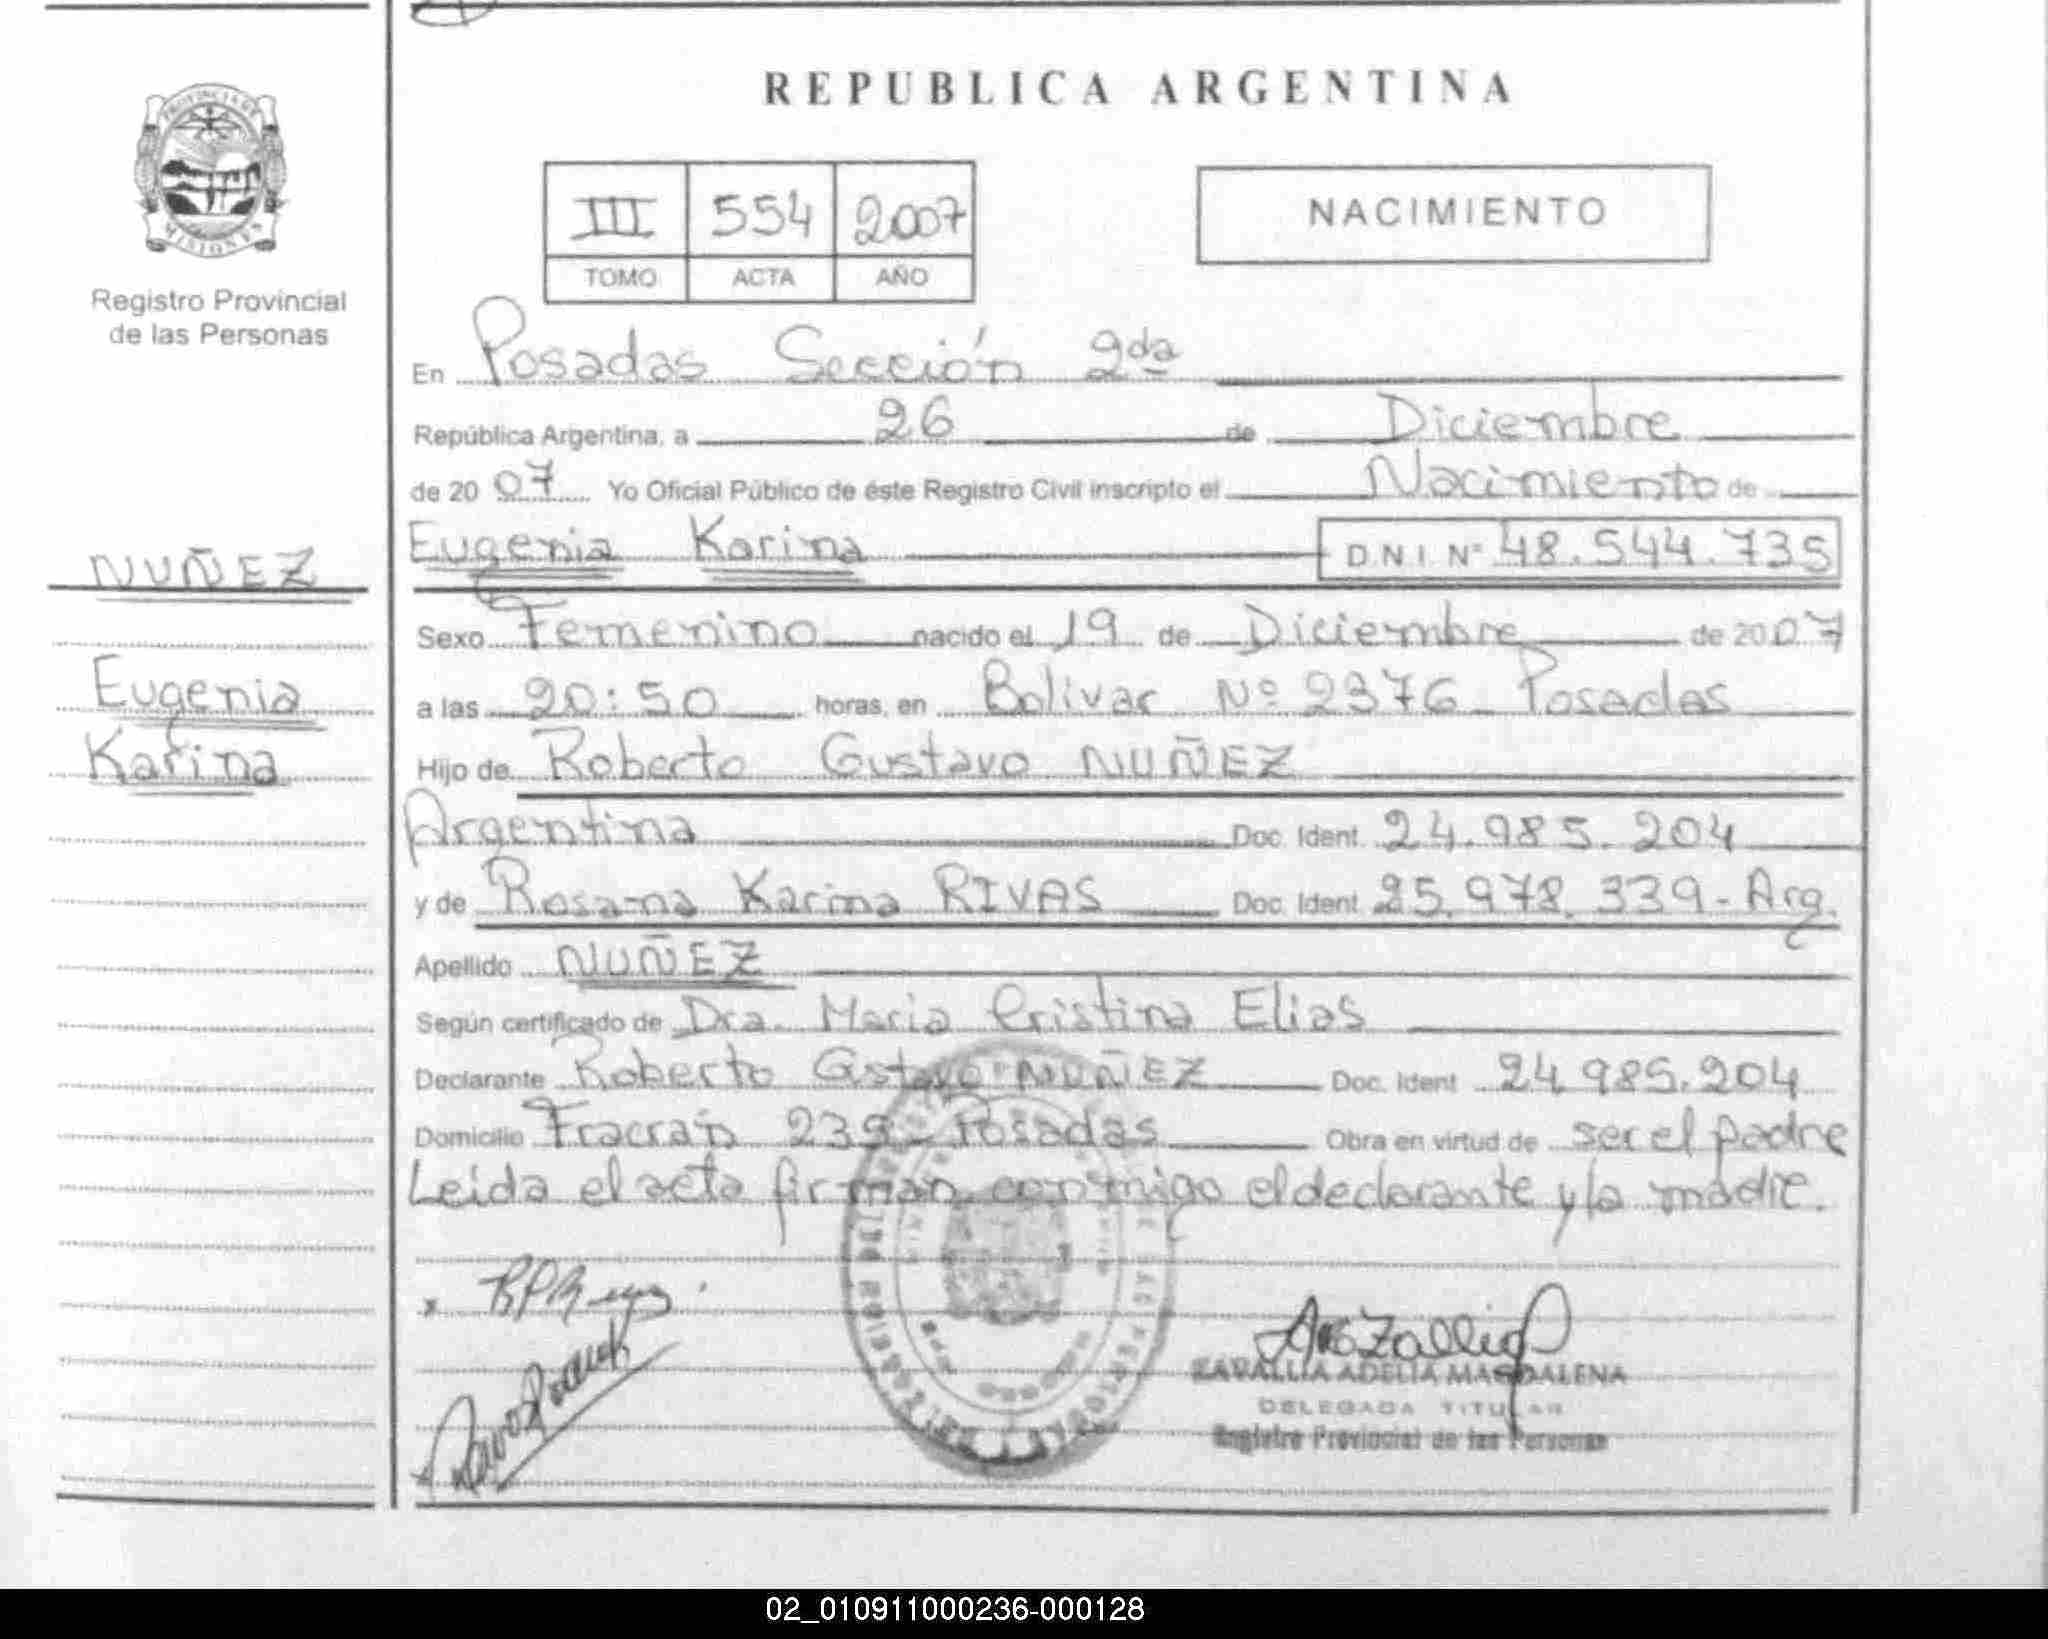 REPUBLICA ARGENTINA
PROVINCIA DE
MISIONES
Registro Provincial
de las Personas
III 554 2007
TOMO ACTA AÑO
NACIMIENTO
En Posadas Sección 2da
República Argentina, a 26 de Diciembre
de 20 07 Yo Oficial Público de éste Registro Civil inscripto el Nacimiento de
NUÑEZ
Eugenia
Karina
Eugenia Karina D.N.I. Nº 48.544.735
Sexo Femenino nacido el 19 de Diciembre de 20 07
a las 20:50 horas, en Bolivar Nº 2376 - Posadas
Hijo de Roberto Gustavo NUÑEZ
Argentina Doc. Ident. 24.985.204
y de Rosana Karina RIVAS Doc. Ident. 25.978.339 - Arg.
Apellido NUÑEZ
Según certificado de Dra. Maria Cristina Elias
Declarante Roberto Gstavo NUÑEZ Doc. Ident 24 985.204
Domicilio Fracrán 239 - Posadas Obra en virtud de ser el padre
Leida el acta firman conmigo el declarante y la madre.
ZARALLIA ADELIA MAGDALENA
DELEGADA TITULAR
Registro Provincial de las Personas
02_010911000236-000128